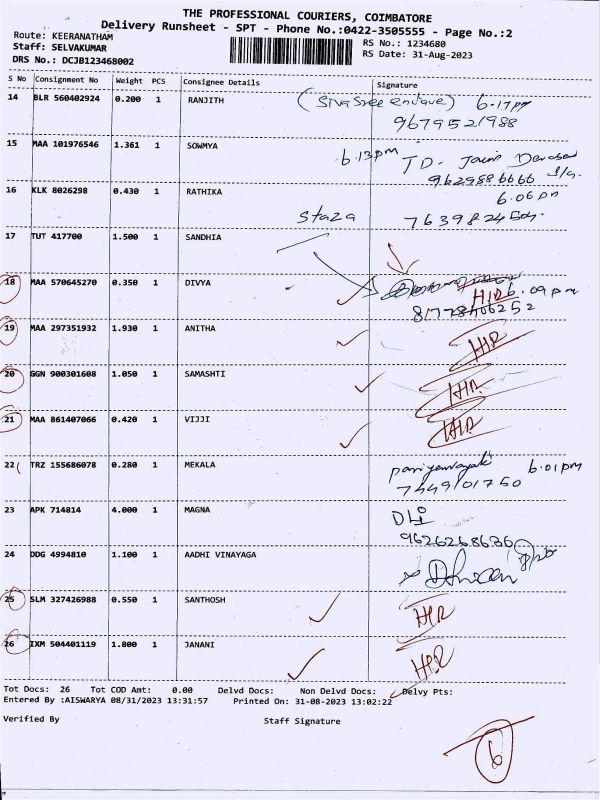 THE PROFESSIONAL COURIERS, COIMBATORE
Delivery Runsheet - SPT - Phone No.:0422-3505555 - Page No.:2
Route: KEERANATHAM
Staff: SELVAKUMAR
DRS No.: DCJB123468002
RS No.: 1234680
RS Date: 31-Aug-2023
S No Consignment No Weight PCS Consignee Details Signature
14 BLR 560402924 0.200 1 RANJITH 6.17pm
15 MAA 101976546 1.361 1 SOWMYA 6.13pm T.D.
9629886666
16 KLK 8026298 0.430 1 RATHIKA 6.06pm
Staza
17 TUT 417700 1.500 1 SANDHIA
18 MAA 570645270 0.350 1 DIVYA HIR 6.09pm
19 MAA 297351932 1.930 1 ANITHA HIR
20 GGN 900301608 1.050 1 SAMASHTI HIR
21 MAA 861407066 0.420 1 VIJJI HIR
22 TRZ 155686078 0.280 1 MEKALA 6.01pm
23 APK 714814 4.000 1 MAGNA
9626268636
24 DDG 4994810 1.100 1 AADHI VINAYAGA
25 SLM 327426988 0.550 1 SANTHOSH HIR
26 IXM 504401119 1.800 1 JANANI HIR
Tot Docs: 26 Tot COD Amt: 0.00 Delvd Docs: Non Delvd Docs: Delvy Pts:
Entered By :AISWARYA 08/31/2023 13:31:57 Printed On: 31-08-2023 13:02:22
Verified By Staff Signature
6